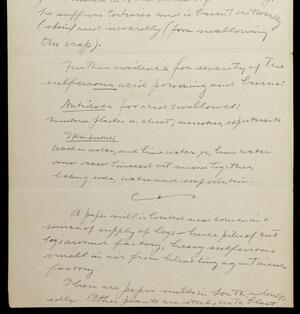 he suffers tortures and is burnt outwardly
(skin) and inwardly (from swallowing
the crap).
Further evidence for severity of the
sulferous acid poisoning and burns:
Antidote for acid swallowed:
mustard plaster on chest, narcotics, expectorants
Skin burned:
Wash in water, and lime water, or, lime water
and raw linseed oil mixed together,
baking soda, water and soap solution.
A paper mill is located near convenient
source of supply of logs - hence piles of cut
logs around factory, heavy sulferous
smell in air from bleaching agent inside
factory.
There are paper mills in South, undoubt-
edly. Other plants are